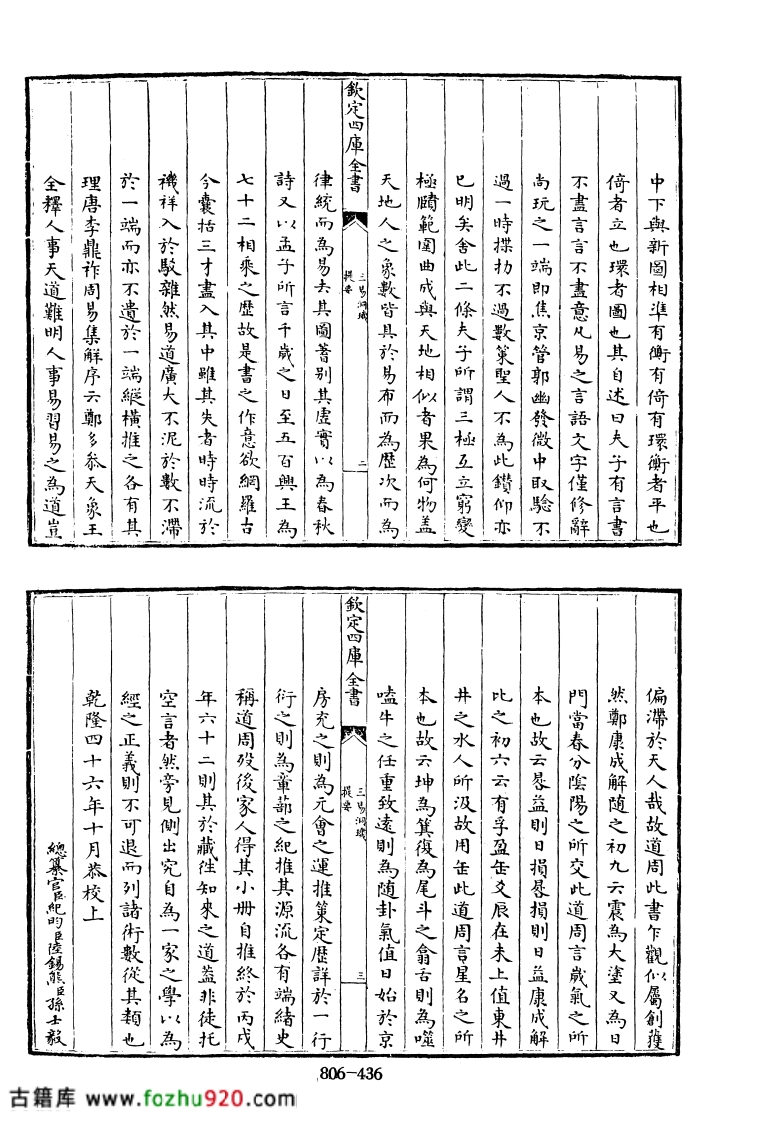 中下與新圖相準有衡有倚有環衡者平也
倚者立也環者圖也其自述曰夫子有言書
不盡言言不盡意凡易之言語文字僅修辭
尚玩之一端即焦京管郭幽發微中取驗不
過一時揲扐不過數策聖人不為此鑽仰亦
已明矣舍此二條夫子所謂三極互立窮變
極賾範圍曲成與天地相似者果為何物盖
天地人之象數皆具於易布而為歴次而為
欽定四庫全書
三易洞璣
提要
二
律統而為易去其圖蓍别其虚實以為春秋
詩又以孟子所言千歲之日至五百興王為
七十二相乘之歴故是書之作意欲網羅古
今囊括三才盡入其中雖其失者時時流於
禨祥入於駁雜然易道廣大不泥於數不滯
於一端而亦不遺於一端縱横推之各有其
理唐李鼎祚周易集解序云鄭多参天象王
全釋人事天道難明人事易習易之為道豈
偏滯於天人哉故道周此書乍觀似屬創獲
然鄭康成解随之初九云震為大塗又為日
門當春分隂陽之所交此道周言歲氣之所
本也故云晷益則日損晷損則日益康成解
比之初六云有孚盈缶爻辰在未上值東井
井之水人所汲故用缶此道周言星名之所
本也故云坤為箕復為尾斗之翕舌則為噬
嗑牛之任重致遠則為随卦氣值日始於京
欽定四庫全書
三易洞璣
提要
三
房充之則為元會之運推策定歴詳於一行
衍之則為章蔀之紀推其源流各有端緒史
稱道周殁後家人得其小册自推終於丙戌
年六十二則其於藏徃知來之道葢非徒托
空言者然旁見側出究自為一家之學以為
經之正義則不可退而列諸術數從其類也
乾隆四十六年十月恭校上
總纂官臣紀昀臣陸錫熊臣孫士毅
806-436
古籍库 www.fozhu920.com